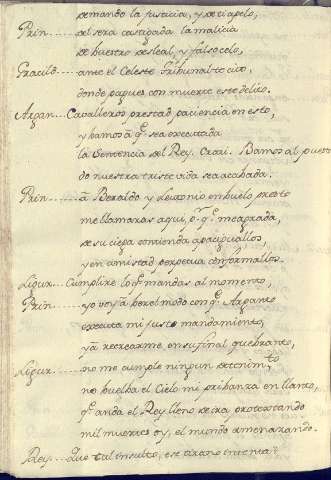 demando la justicia, y desde apelo,
Prin.....del sera castigada la malicia
de vuestro desleal, y falso celo,
Gracild.....ante el Celeste Tribunal te cito,
donde pagues con muerte este delito.
Argan...Cavalleros prestad paciencia en esto,
y bamos a q̃ sea executada
la Sentencia del Rey. Bamos al puesto
do nuestra triste vida sea acabada.
Prin.....a Beraldo y en buelo presto
me llamaras aqui, q̃ me agrada,
de su ciega contienda apaciguallos,
y en amistad perpetua conformallos.
Ligur...Cumplire lo q̃ mandas al momento,
Prin.....yo voy a ber el modo con q̃ Argante
executa mi justo mandamiento,
y a recrearme en su final quebranto,
Ligur.....no me cumple ningun
no buelba el Cielo mi pribanza en llanto,
q̃ anda el Rey lleno de ira protestando
mil muertes oy, el mundo amenazando.
Rey...Que tal insulto, ese tirano intenta?